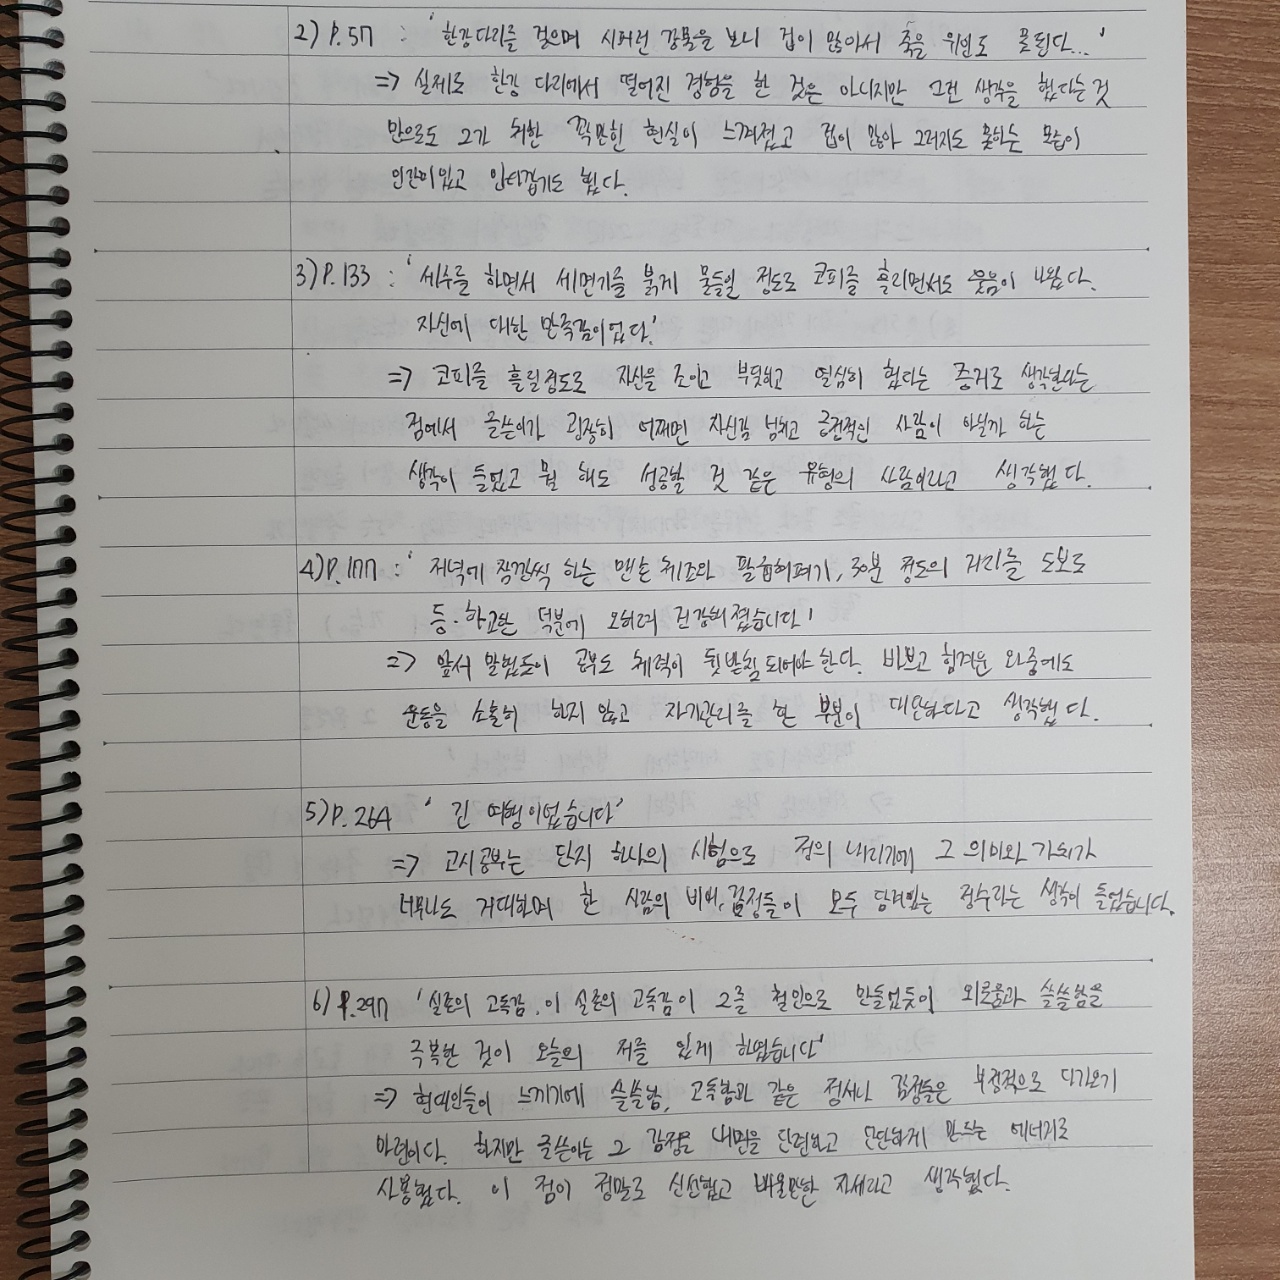 2) P.57 : '한강다리를 걸으며 시꺼먼 강물을 보니 겁이 많아서 죽을 위인도 못된다...'
=> 실제로 한강 다리에서 떨어진 경험을 한 것은 아니지만 그런 생각을 했다는 것
만으로도 그가 처한 꽉막힌 현실이 느껴졌고 겁이 많아 그러지도 못하는 모습이
인간미있고 안타깝기도 했다.
3) P.133 : '세수를 하면서 세면기를 붉게 물들일 정도로 코피를 흘리면서도 웃음이 나왔다.
자신에 대한 만족감이었다.'
=> 코피를 흘릴정도로 자신을 조이고 부딪히고 열심히 했다는 증거로 생각한다는
점에서 글쓴이가 굉장히 어쩌면 자신감 넘치고 긍정적인 사람이 아닐까 하는
생각이 들었고 뭘 해도 성공할 것 같은 유형의 사람이라고 생각했다.
4) P.177 : '저녁에 잠깐씩 하는 맨손 체조와 팔굽혀펴기, 30분 정도의 거리를 도보로
등·하교한 덕분에 오히려 건강해졌습니다'
=> 앞서 말했듯이 공부도 체력이 뒷받침 되어야 한다. 바쁘고 힘겨운 와중에도
운동을 소홀히 하지 않고 자기관리를 한 부분이 대단하다고 생각했다.
5) P.264 '긴 여행이었습니다'
=> 고시공부는 단지 하나의 시험으로 정의 내리기에 그 의미와 가치가
너무나도 거대하며 한 사람의 감정들이 모두 담겨있는 정수라는 생각이 들었습니다.
6) P.297 '실존의 고독감, 이 실존의 고독감이 그를 철인으로 만들었듯이 외로움과 쓸쓸함을
극복한 것이 오늘의 저를 있게 하였습니다'
=> 현대인들이 느끼기에 쓸쓸함, 고독함과 같은 정서나 감정들은 부정적으로 다가오기
마련이다. 하지만 글쓴이는 그 감정을 내면을 단련하고 단단하게 만드는 에너지로
사용했다. 이 점이 정말로 신선했고 배울만한 자세라고 생각했다.